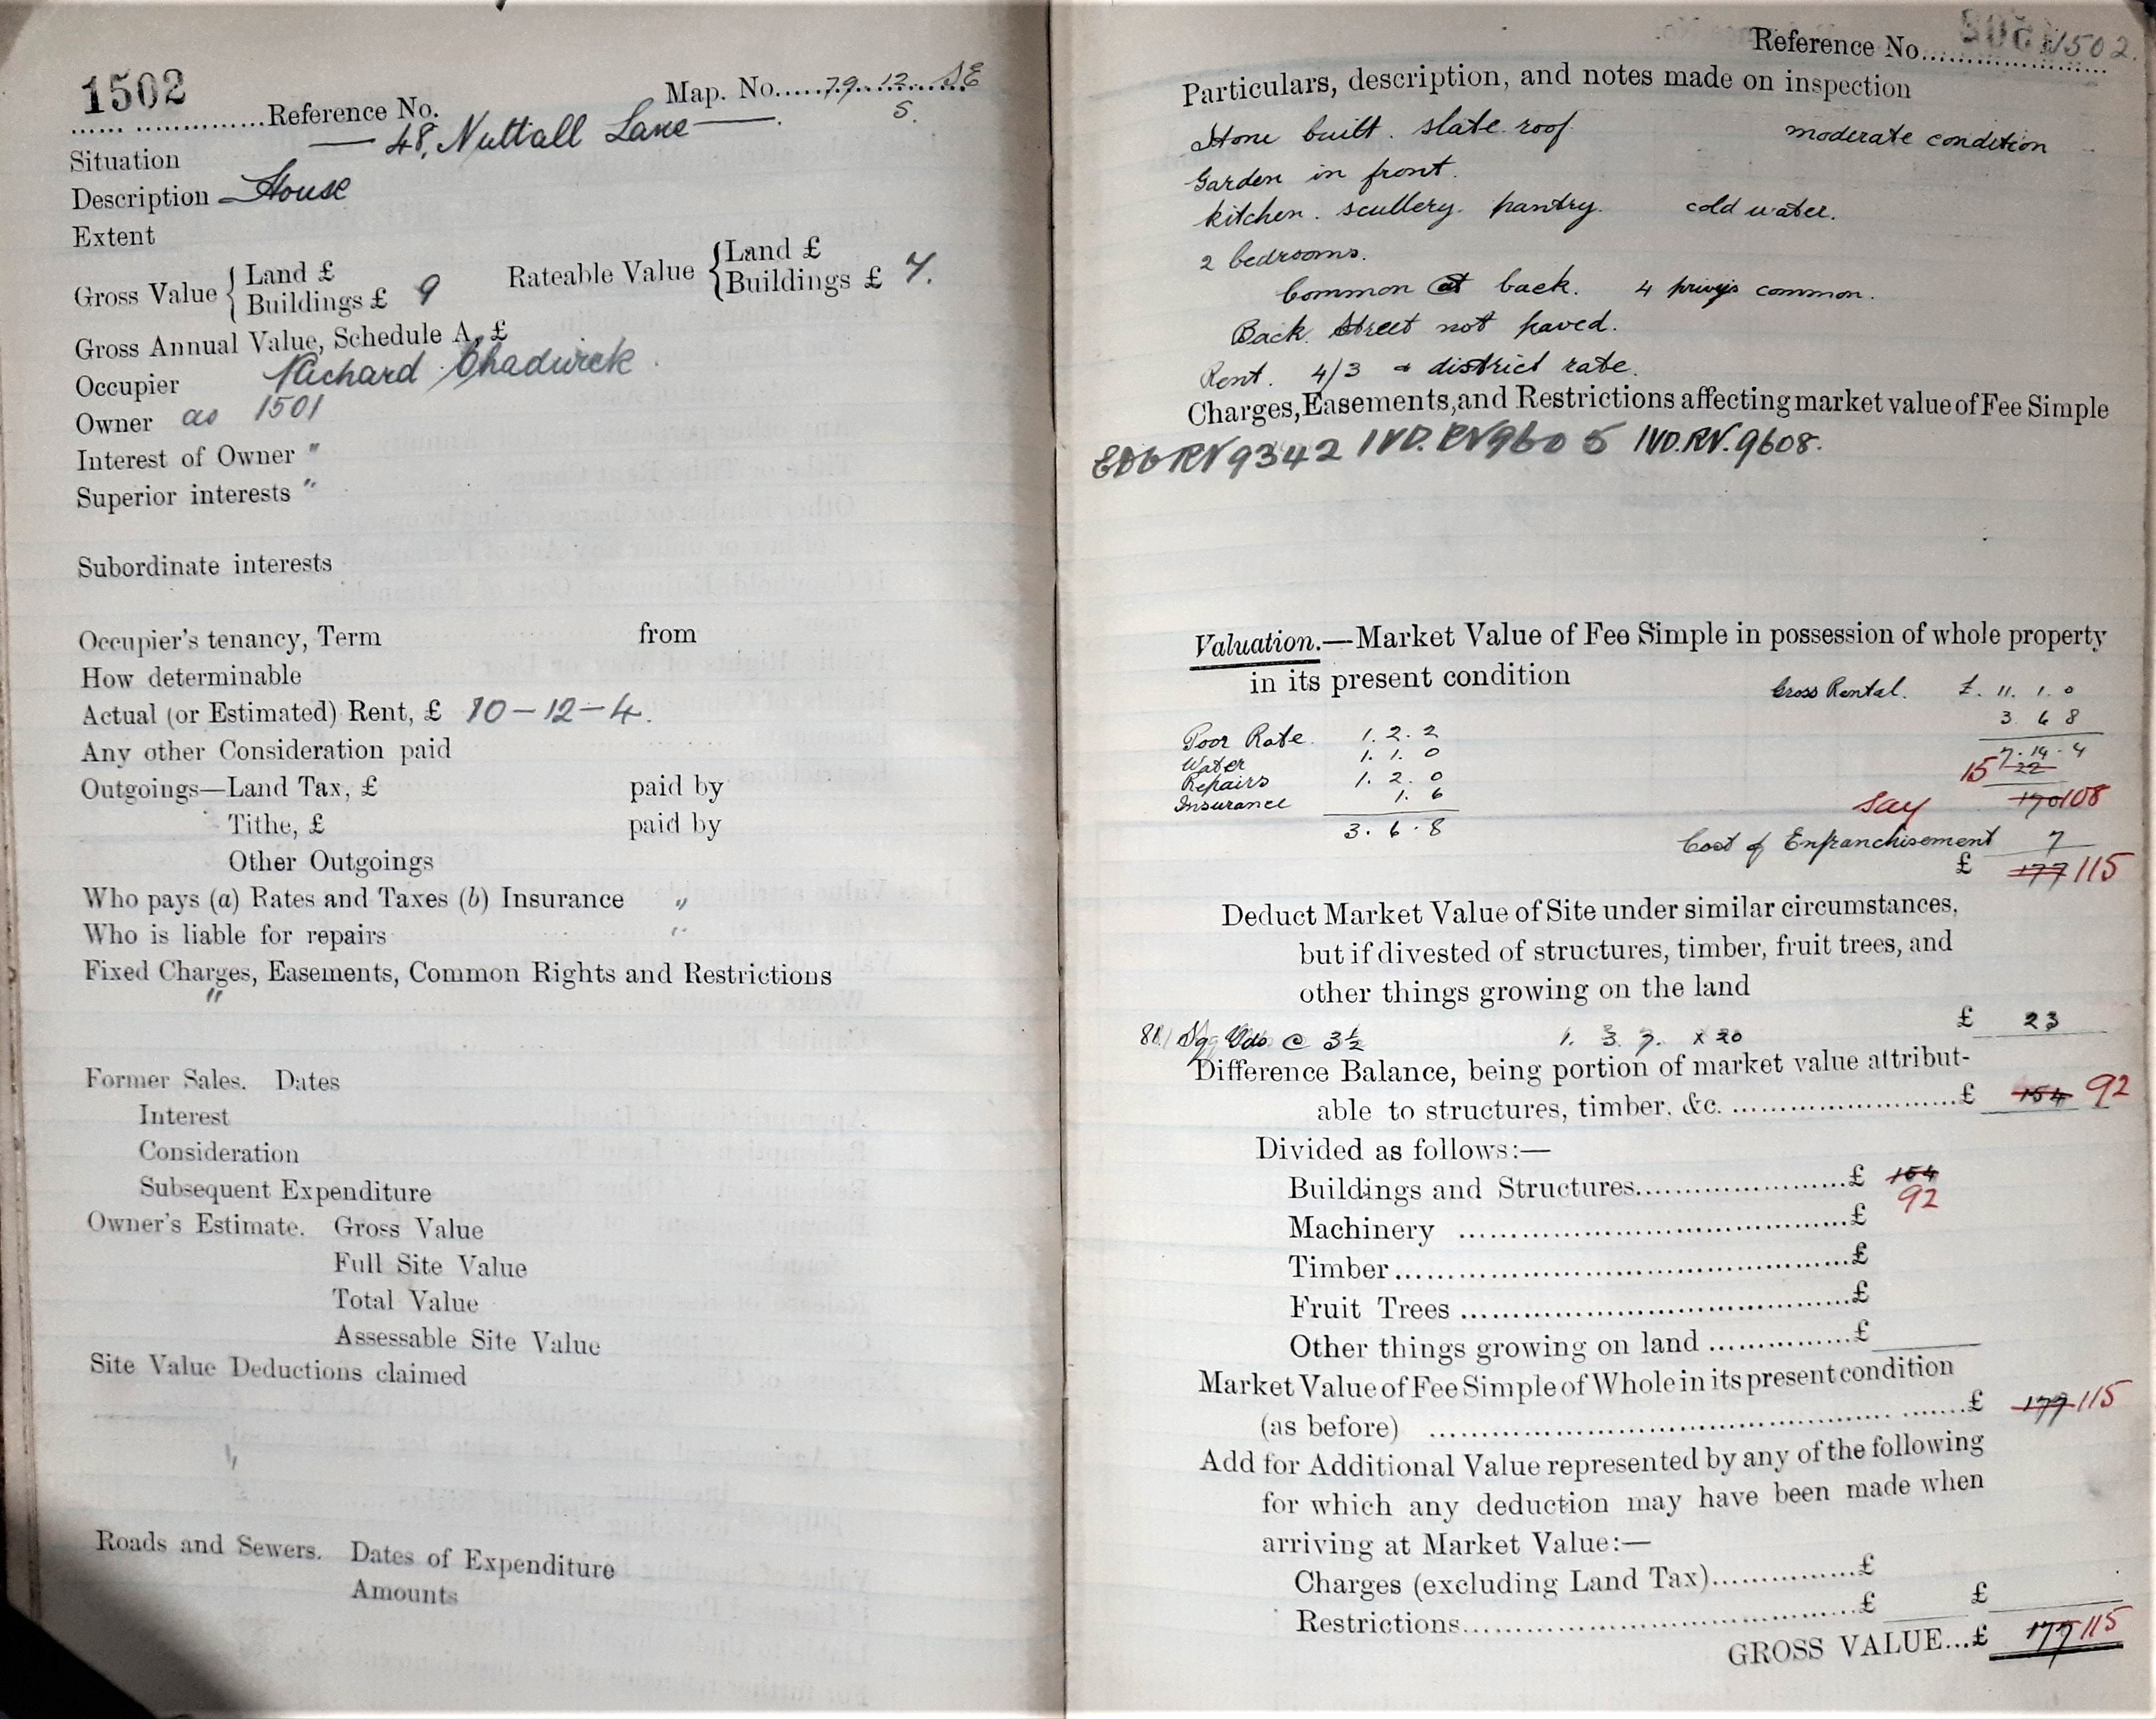 1502
Reference No.
Map. No. 79.12. SE
S.
Situation — 48, Nuttall Lane —
Description House
Extent
Gross Value { Land £
Buildings £ 9
Rateable Value { Land £
Buildings £ 7.
Gross Annual Value, Schedule A, £
Occupier Richard Chadwick.
Owner as 1501
Interest of Owner "
Superior interests "
Subordinate interests
Occupier's tenancy, Term from
How determinable
Actual (or Estimated) Rent, £ 10-12-4.
Any other Consideration paid
Outgoings—Land Tax, £ paid by
Tithe, £ paid by
Other Outgoings
Who pays (a) Rates and Taxes (b) Insurance "
Who is liable for repairs "
Fixed Charges, Easements, Common Rights and Restrictions
"
Former Sales. Dates
Interest
Consideration
Subsequent Expenditure
Owner's Estimate. Gross Value
Full Site Value
Total Value
Assessable Site Value
Site Value Deductions claimed
"
Roads and Sewers. Dates of Expenditure
Amounts
Reference No. 1502.
Particulars, description, and notes made on inspection
Stone built. slate roof. moderate condition
Garden in front.
kitchen. scullery. pantry. cold water.
2 bedrooms.
Common at back. 4 privys common.
Back Street not paved.
Rent. 4/3 & district rate.
Charges, Easements, and Restrictions affecting market value of Fee Simple
RV 9342 IVD. RV 9605 IVD. RV. 9608.
Valuation.—Market Value of Fee Simple in possession of whole property
in its present condition
Gross Rental. £. 11. 1. 0
3 6 8
Poor Rate. 1. 2. 2
7. 14. 4
Water 1. 1. 0
15 22
Repairs 1. 2. 0
Insurance 1. 6
say 170 108
3. 6. 8
Cost of Enfranchisement 7
£ 177 115
Deduct Market Value of Site under similar circumstances,
but if divested of structures, timber, fruit trees, and
other things growing on the land
£ 23
81 Sq Yds @ 3½ 1. 3. 7. x 20
Difference Balance, being portion of market value attribut-
able to structures, timber, &c. £ 154 92
Divided as follows:—
Buildings and Structures £ 154
92
Machinery £
Timber £
Fruit Trees £
Other things growing on land £
Market Value of Fee Simple of Whole in its present condition
(as before) £ 177 115
Add for Additional Value represented by any of the following
for which any deduction may have been made when
arriving at Market Value:—
Charges (excluding Land Tax) £
Restrictions £ £
GROSS VALUE...£ 177 115